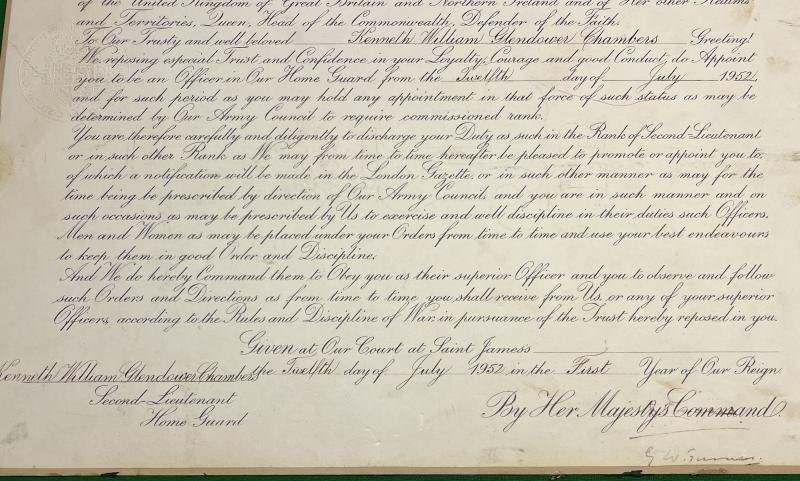 of the United Kingdom of Great Britain and Northern Ireland and of Her other Realms
and Territories, Queen, Head of the Commonwealth, Defender of the Faith.
To Our Trusty and well beloved Kenneth William Glendower Chambers Greeting!
We reposing especial Trust and Confidence in your Loyalty, Courage and good Conduct, do Appoint
you to be an Officer in Our Home Guard from the Twelfth day of July 1952,
and for such period as you may hold any appointment in that force of such status as may be
determined by Our Army Council to require commissioned rank.
You are therefore carefully and diligently to discharge your Duty as such in the Rank of Second-Lieutenant
or in such other Rank as We may from time to time hereafter be pleased to promote or appoint you to,
of which a notification will be made in the London Gazette, or in such other manner as may for the
time being be prescribed by direction of Our Army Council, and you are in such manner and on
such occasions as may be prescribed by Us to exercise and well discipline in their duties such Officers,
Men and Women as may be placed under your Orders from time to time and use your best endeavours
to keep them in good Order and Discipline.
And We do hereby Command them to Obey you as their superior Officer and you to observe and follow
such Orders and Directions as from time to time you shall receive from Us, or any of your superior
Officers, according to the Rules and Discipline of War, in pursuance of the Trust hereby reposed in you.
Given at Our Court at Saint James's
the Twelfth day of July 1952 in the First Year of Our Reign
Kenneth William Glendower Chambers
Second-Lieutenant
Home Guard
By Her Majesty's Command.